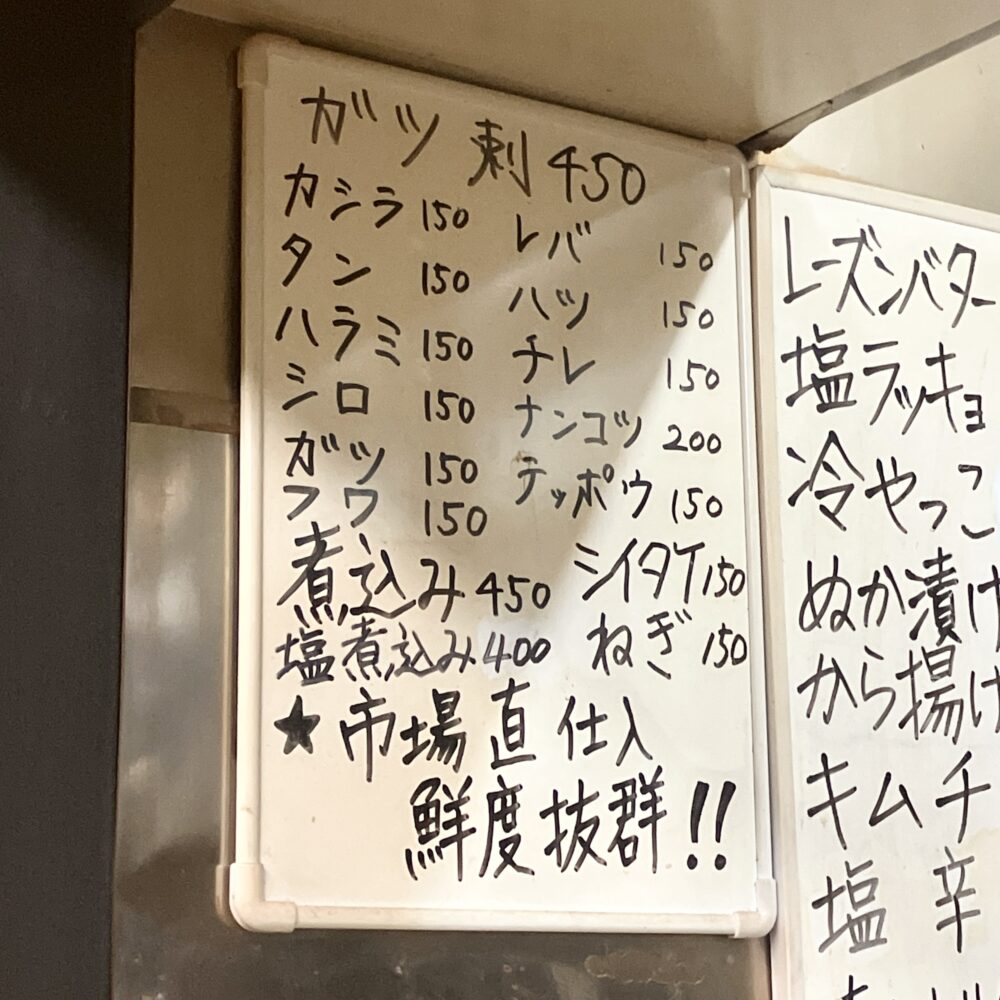 ガツ刺 450
カシラ 150 レバ 150
タン 150 ハツ 150
ハラミ 150 チレ 150
シロ 150 ナンコツ 200
ガツ 150 テッポウ 150
フワ 150
煮込み 450 シイタケ 150
塩煮込み 400 ねぎ 150
★市場直仕入
鮮度抜群!!
レーズンバター
塩ラッキョ
冷やっこ
ぬか漬け
から揚げ
キムチ
塩辛